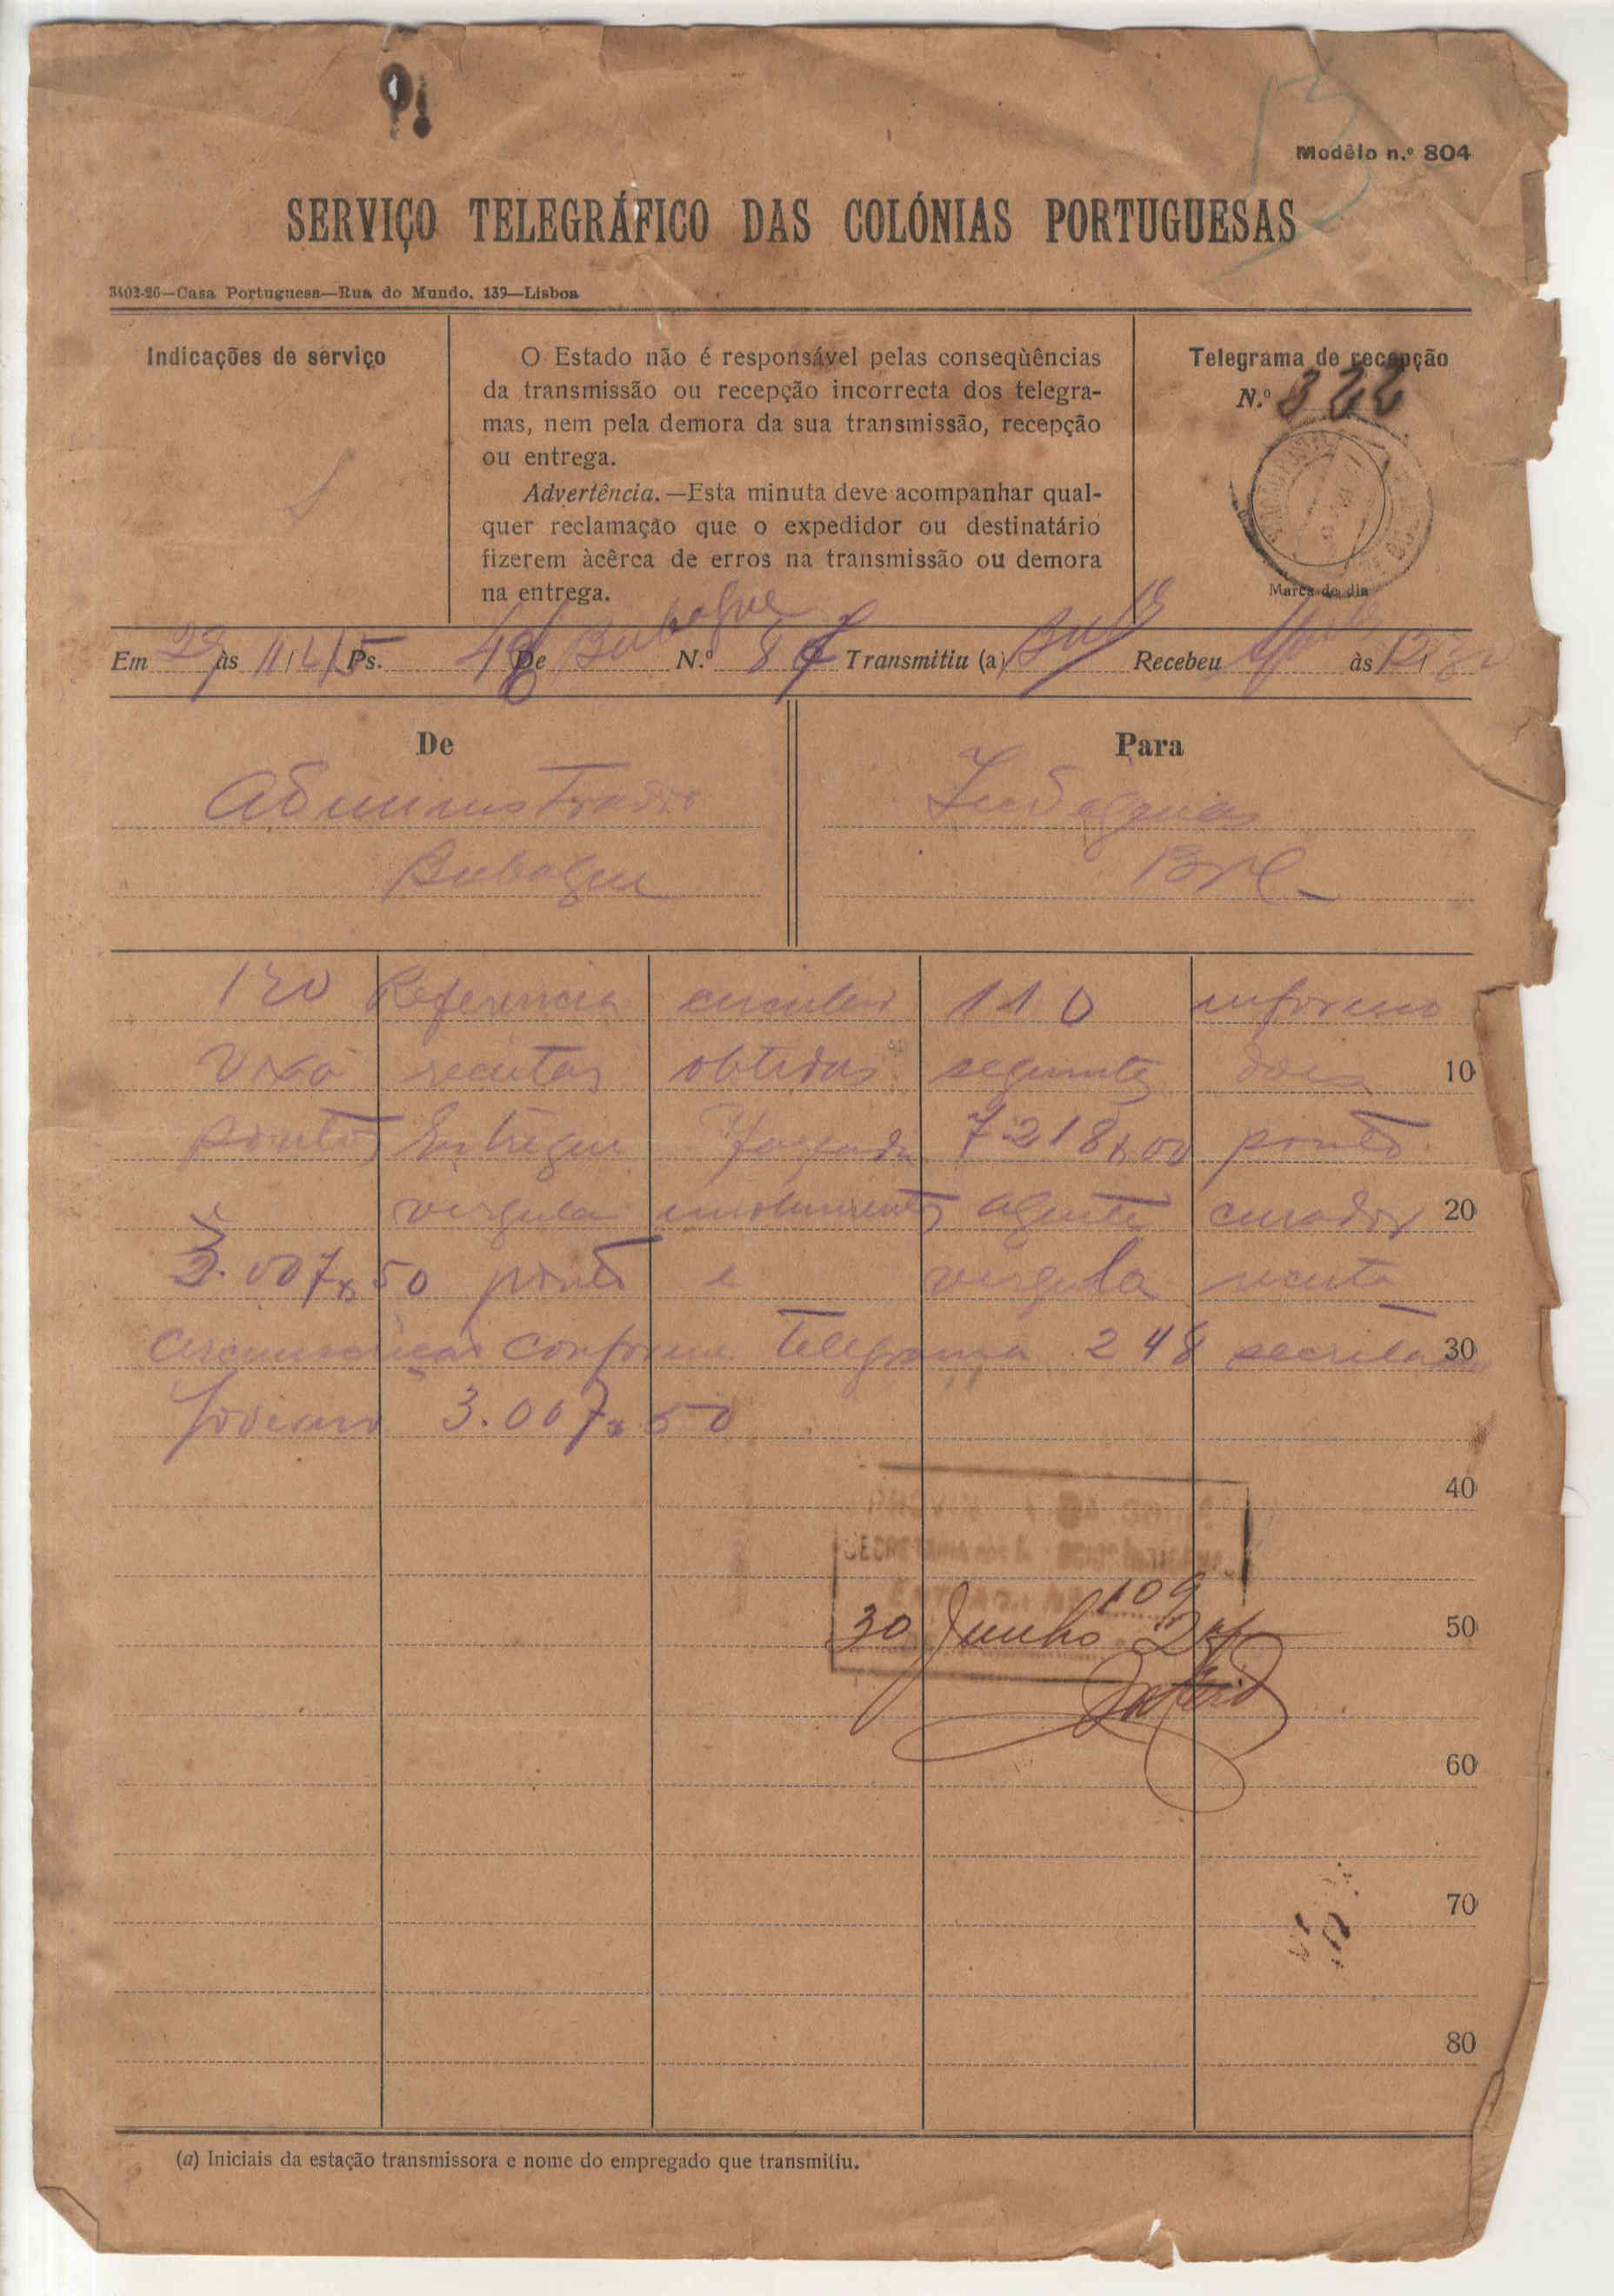 Modêlo n.º 804
SERVIÇO TELEGRÁFICO DAS COLÓNIAS PORTUGUESAS
3402-26—Casa Portuguesa—Rua do Mundo, 139—Lisboa
Indicações de serviço
O Estado não é responsável pelas conseqùências
da transmissão ou recepção incorrecta dos telegra-
mas, nem pela demora da sua transmissão, recepção
ou entrega.
Advertência.—Esta minuta deve acompanhar qual-
quer reclamação que o expedidor ou destinatário
fizerem àcêrca de erros na transmissão ou demora
na entrega.
Telegrama de recepção
N.º 322
Marca do dia
Em 29 às 11,45 Ps. 48 De Bubaque N.º 87 Transmitiu (a) Recebeu às
De
Administrador
Bubaque
Para
Indigenas
Bolama
120 Referencia circular 110 informo
Vexa receitas obtidas seguintes dois
pontos Entregue Fazenda 7218$00 ponto
virgula emolumentos agente curador 20
3.007$50 ponto e virgula receita
circunscrição conforme telegrama 248 secretaria 30
Governo 3.007$50
10
40
109
30 Junho 27
50
60
70
80
(a) Iniciais da estação transmissora e nome do empregado que transmitiu.